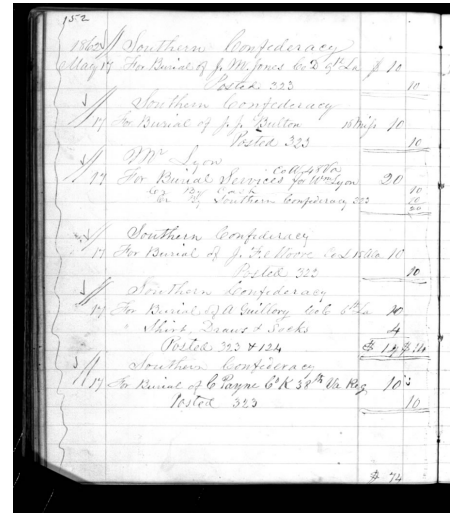 152
1862 Southern Confederacy
May 17 For Burial of J. M. Jones Co D 9th La $ 10
Posted 323 10
Southern Confederacy
17 For Burial of J. J. Bulton 16 Miss 10
Posted 323 10
Mr Lyon
17 For Burial Services for Wm Lyon Co A 48 Va 20
Cr By Cash 10
Cr By Southern Confederacy 323 10
20
Southern Confederacy
17 For Burial of J. F. Moore Co 10
Posted 323 10
Southern Confederacy
17 For Burial of A Guillory Co C 6th La 10
" Shirt, Draws & Socks 4
Posted 323 & 124 $ 14 $ 14
Southern Confederacy
17 For Burial of C Payne Co K 38th Va Reg 10
Posted 323 10
$ 74